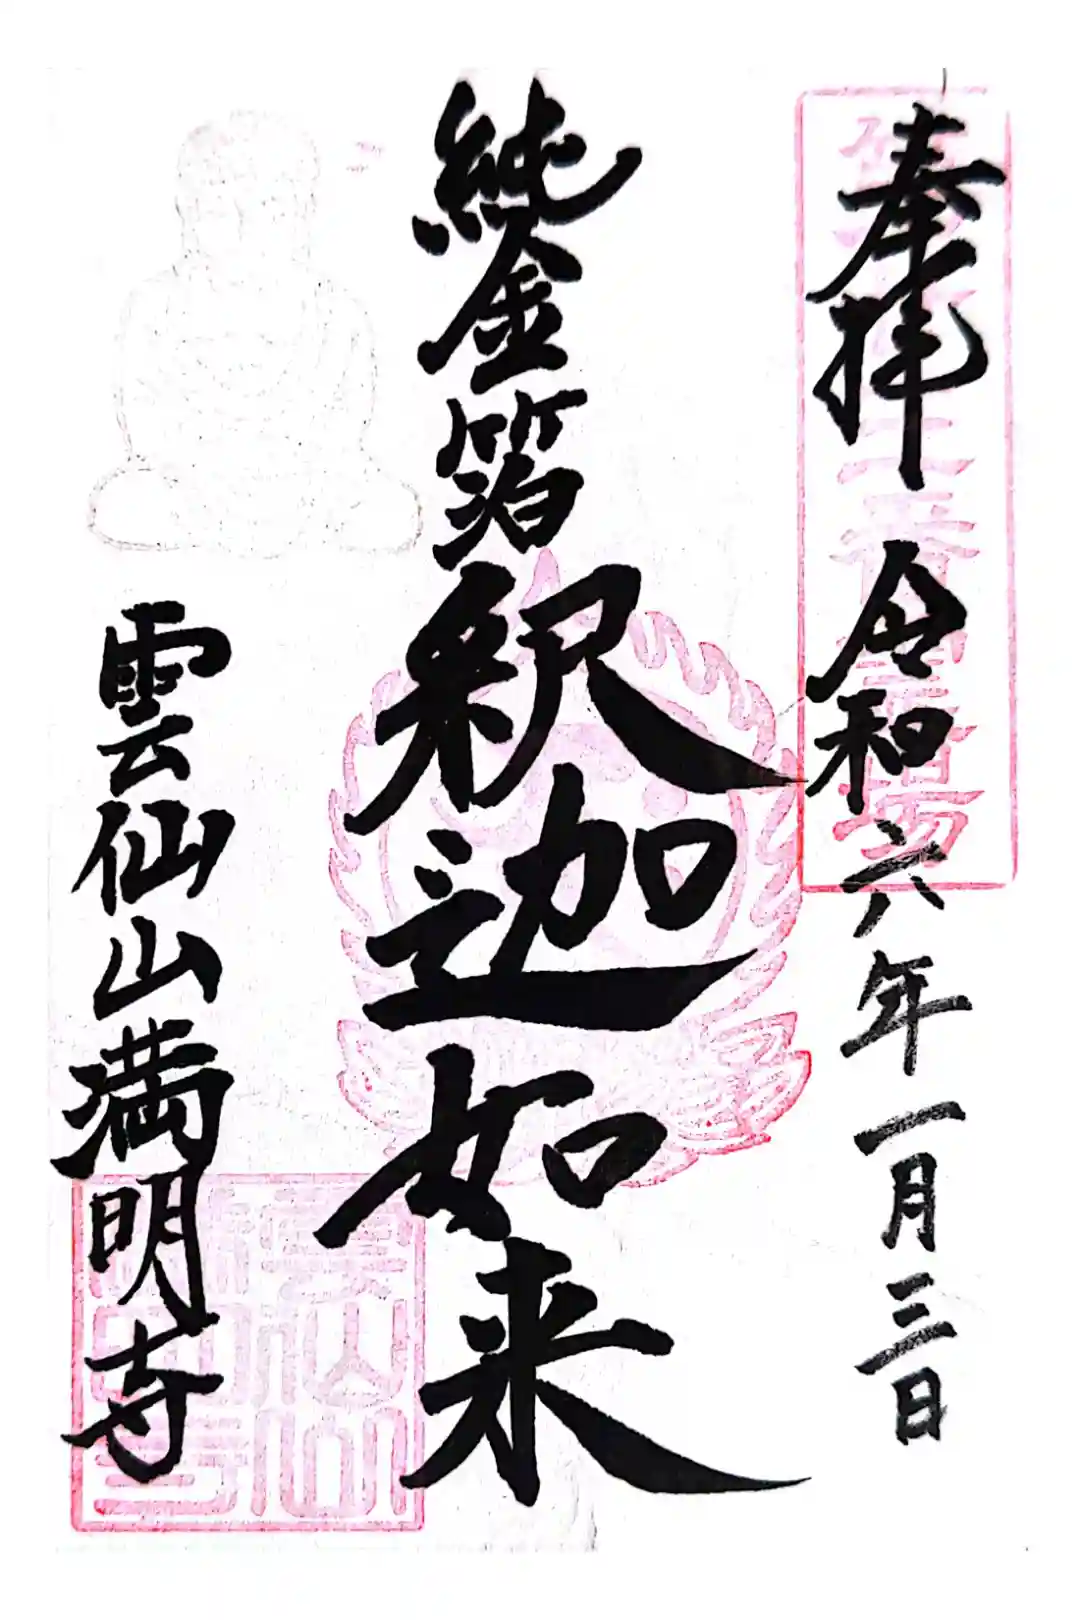 奉拝 令和六年一月三日
純金箔
釈迦如来
雲仙山満明寺